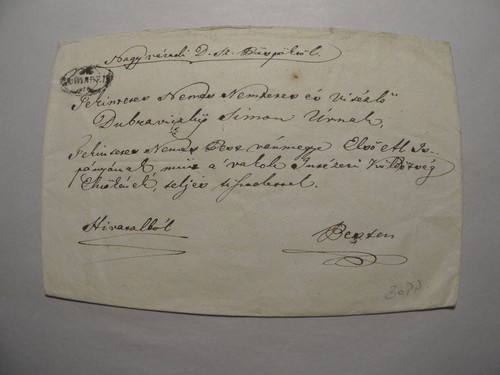 Nagyváradi D. Sz. Püspöktől.
Tekintetes Nemes Nemzetes és Vitézlő
Dubraviczky Simon Úrnak,
Tekintetes Nemes Pest vármegye Első Al Is-
pányának, mint a vakok Intézeti Küldöttség
Elnökének, teljes tisztelettel.
Hivatalból
Pesten
3077